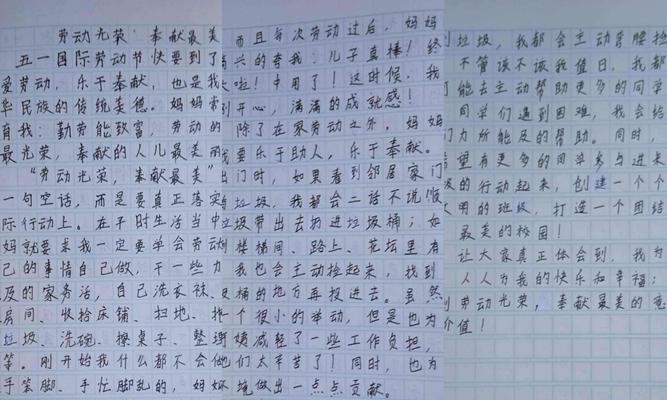 劳动光荣 奉献最美
五一国际劳动节快要到了
爱劳动，乐于奉献，也是我
华民族的传统美德。妈妈常
育我：勤劳能致富，劳动的
最光荣，奉献的人儿最美丽
“劳动光荣，奉献最美”
一句空话，而是要真正落实
际行动上。在平时生活当中
妈就要求我一定要学会劳动
己的事情自己做，干一些力
及的家务活，自己洗衣袜、
房间、收拾床铺、扫地、拖
垃圾、洗碗、擦桌子、整理
等。刚开始我什么都不会做
手笨脚、手忙脚乱的，妈妈
而且每次劳动过后，妈妈
兴的夸我：儿子真棒！终
啦！中用了！这时候，我
到开心，满满的成就感！
除了在家劳动之外，妈妈
我要乐于助人，乐于奉献。
出门时，如果看到邻居家门
有垃圾，我都会二话不说
垃圾带出去扔进垃圾桶；如
楼梯间、路上、花坛里有
我也会主动捡起来，找到
圾桶的地方再投进去。虽然
个很小的举动，但是也为
姨减轻了一些工作负担，
们太辛苦了！同时，也为
境做出一点点贡献。
到垃圾，我都会主动弯腰捡
不管该不该我值日，我都
可能去主动帮助更多的同学
同学们遇到困难，我会给
们力所能及的帮助。同时，
希望有更多的同学参与进来
极的行动起来，创建一个个
文明的班级，打造一个团结
最美的校园！
让大家真正体会到，我为
人人为我的快乐和幸福；
到劳动光荣，奉献最美的意
价值！